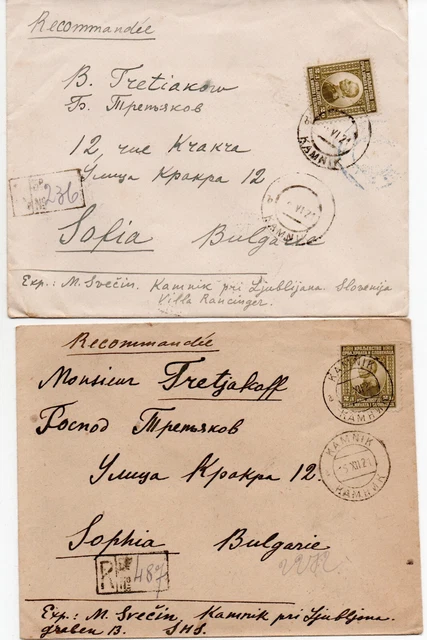 Recommandée
B. Tretiakow
Гв. Третьяков
12 rue Kčakča
Улица Кракра 12
236
Sofia Bulgarie
KAMNIK
VI 2
KAMNIK
VI 2
Exp.: M. Svečin. Kamnik pri Ljubljana. Slovenija
Villa Rancinger.
Recommandée
Monsieur Tretjakoff
Господ Третьяков
Улица Кракра 12.
Sophia Bulgarie
R
487
KAMNIK
КАМНИК
KAMNIK
XII 2
КАМНИК
Exp.: M. Svečin, Kamnik pri Ljubljana.
graben 13. SHS.